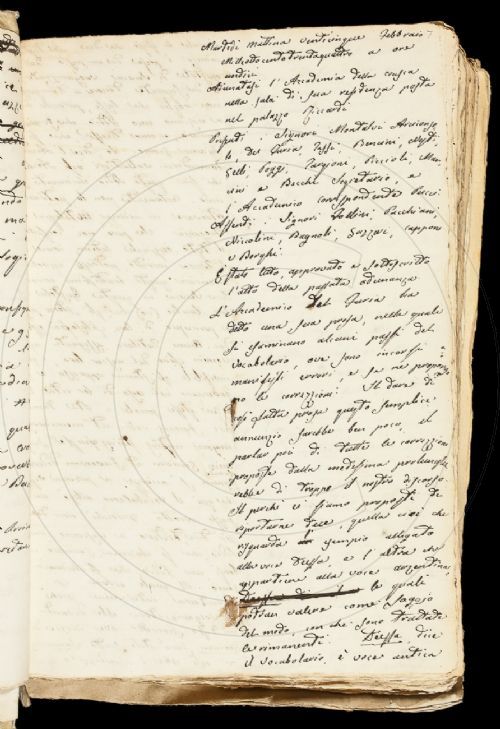 Martedì mattina venticinque Febbraio
Milleottocentotrentaquattro a ore
undici
Adunatasi l'Accademia della Crusca
nella sala di sua residenza posta
nel palazzo Riccardi
Presenti i Signori Montalvi Arciconso-
lo, Del Furia, Bencini,
Gelli, Poggi, Targioni, Piccioli,
e Becchi Segretario, e
l'Accademico corrispondente Pucci
Assenti i Signori Collini, Pacchiani,
Niccolini, Bagnoli, Gazzeri, Capponi
e Borghi.
È stato letto, approvato e sottoscritto
l'atto della passata adunanza
L'Accademico Del Furia ha
detto una sua prosa, nella quale
si esaminano alcuni passi del
vocabolario, ove sono incorsi
manifesti errori, e se ne propongo-
no le correzioni. Il dare di
così fatta prosa questo semplice
annunzio sarebbe ben poco, il
parlar poi di tutte le correzioni
proposte dalla medesima prolunghe-
rebbe di troppo il nostro discorso.
Il perchè ci siamo proposti di
riportarne due, quella cioè che
risguarda l'esempio allegato
alla voce Deessa, e l'altra che
appartiene alla voce
le quali
potran valere come saggio
del modo, con che sono trattate
le rimanenti. Deessa, dice
il vocabolario, è voce antica